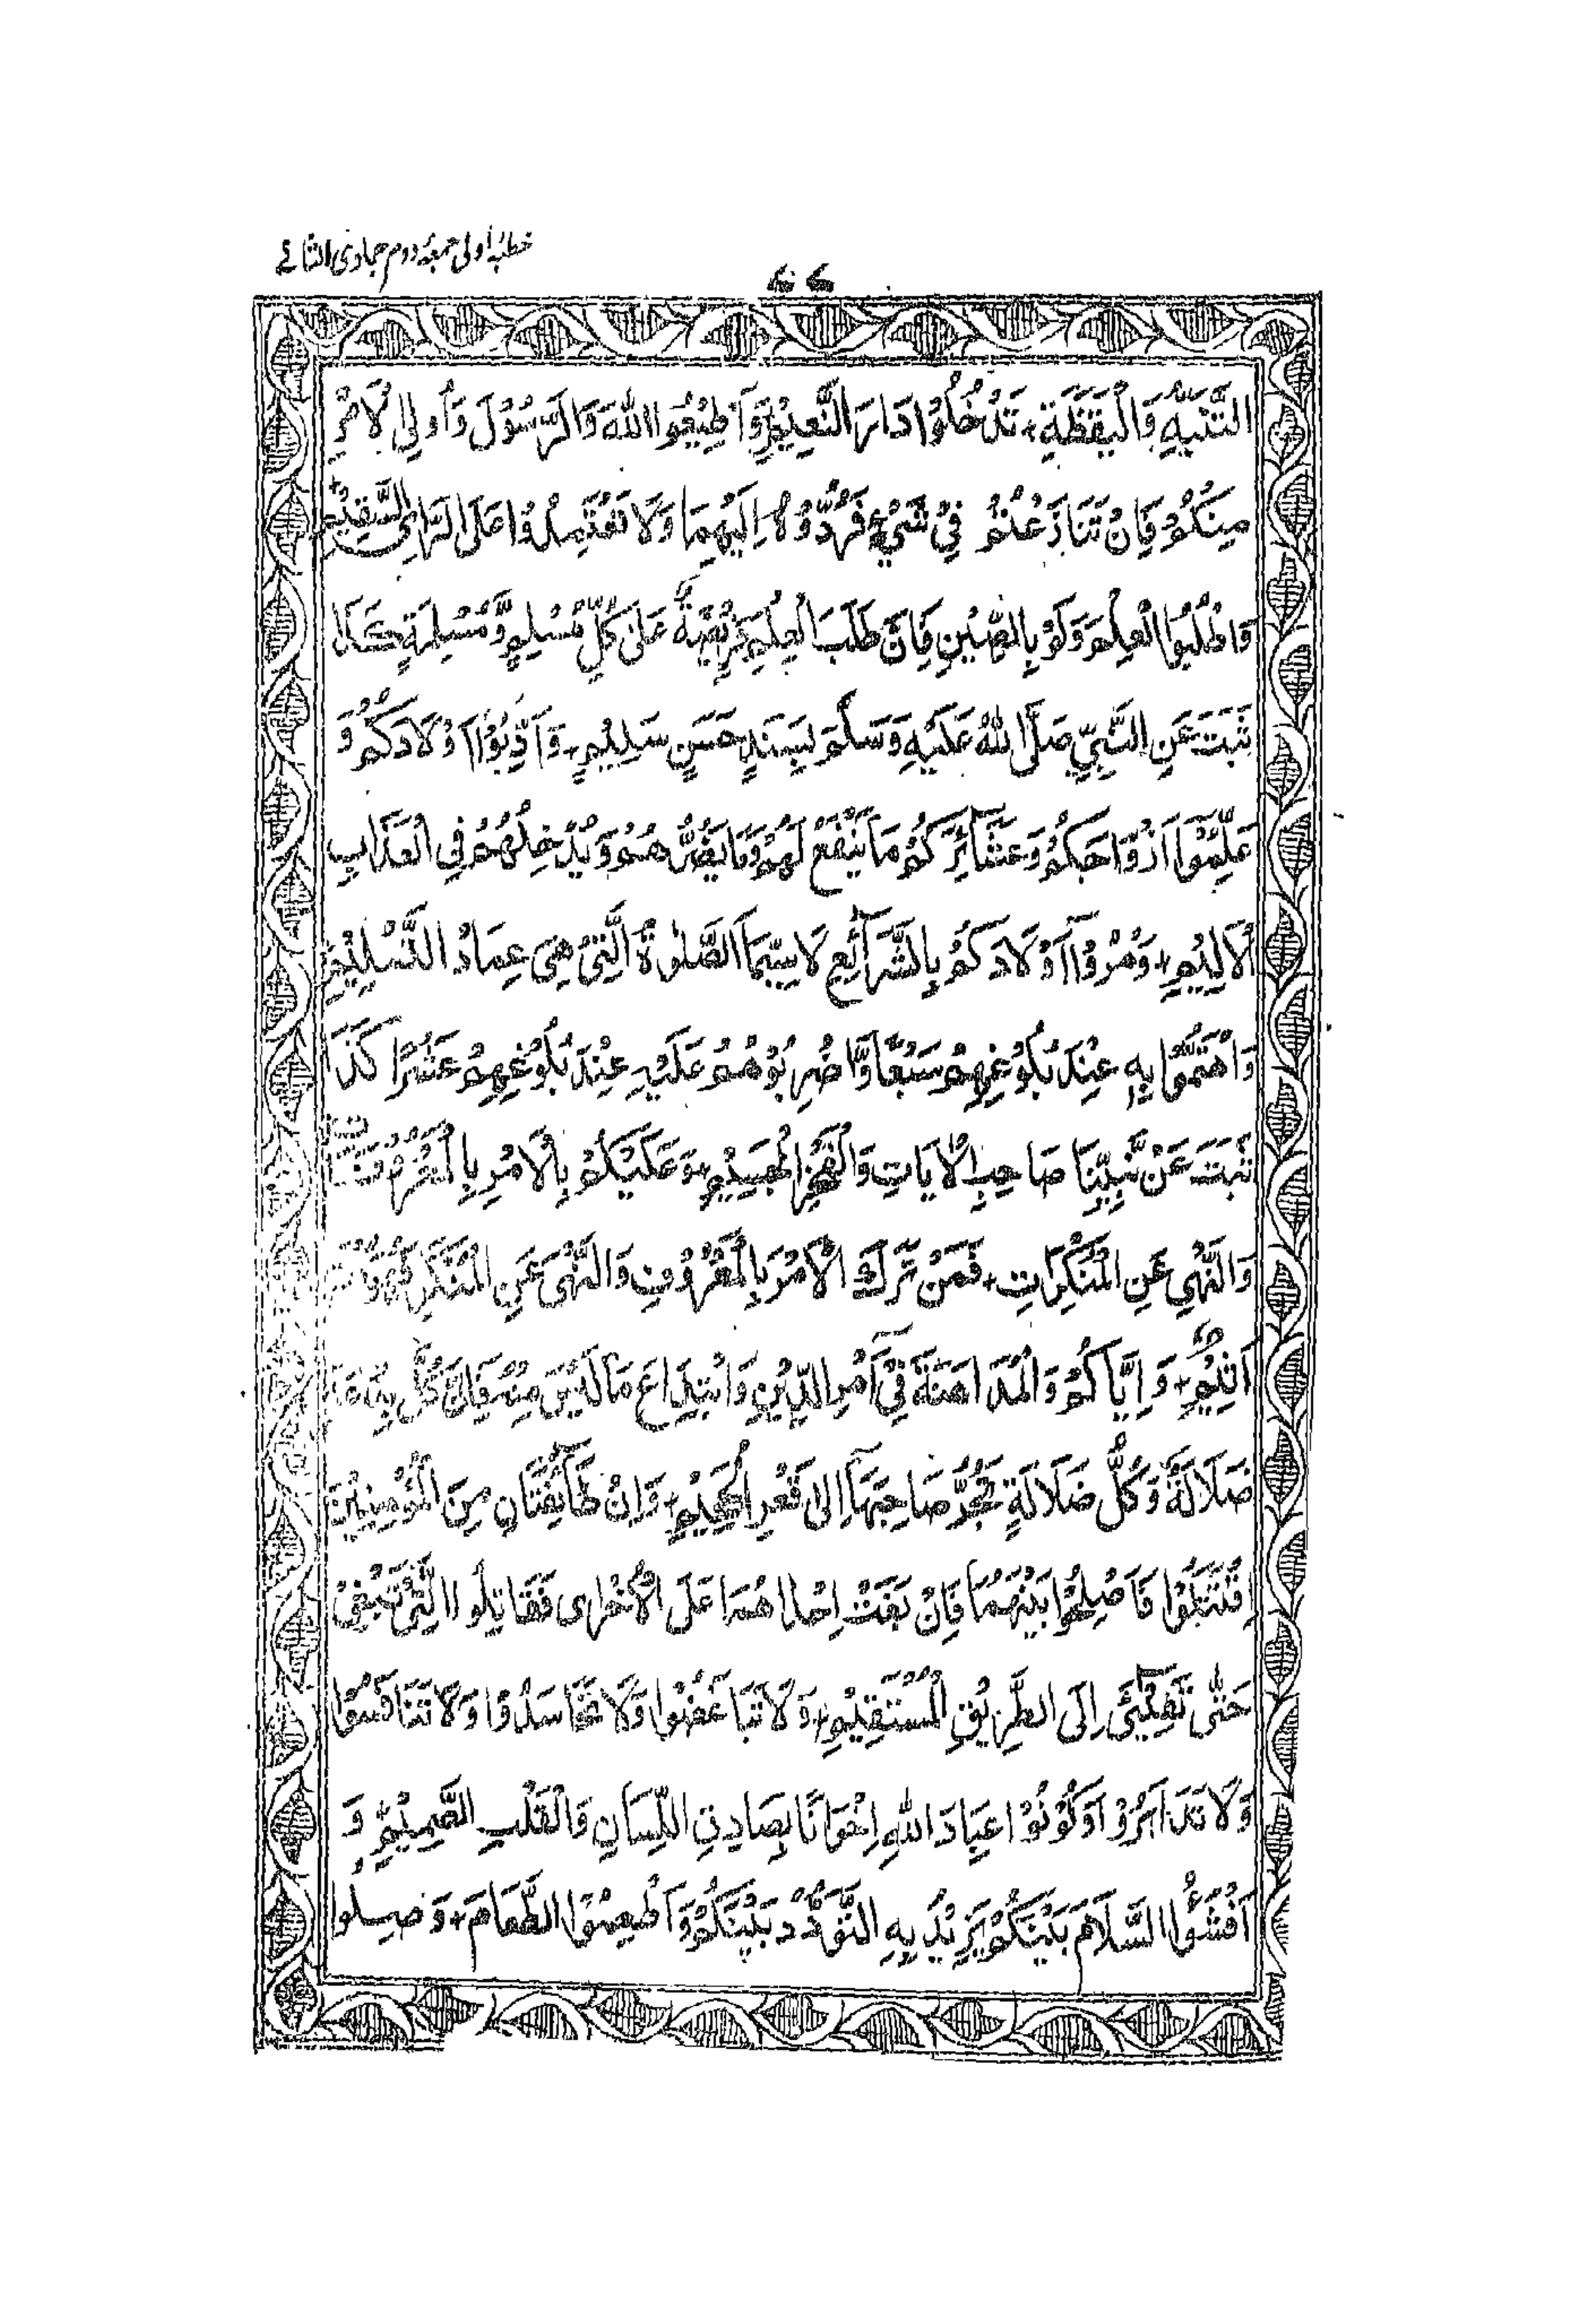 خطبۂ اولی جمعۂ دوم جمادی الثانے
التَّنَبُّهِ وَالْيَقَظَةِ، تَدْخُلُوْا دَارَ النَّعِيْمِ وَاَطِيْعُوا اللّٰهَ وَالرَّسُوْلَ وَاُولِى الْاَمْرِ
مِنْكُمْ فَاِنْ تَنَازَعْتُمْ فِيْ شَيْءٍ فَرُدُّوْهُ اِلَيْهِمَا وَلَا تَعْتَمِدُوْا عَلَى الرَّاىِ السَّقِيْمِ
وَاطْلُبُوا الْعِلْمَ وَلَوْ بِالصِّيْنِ فَاِنَّ طَلَبَ الْعِلْمِ فَرِيْضَةٌ عَلٰى كُلِّ مُسْلِمٍ وَّمُسْلِمَةٍ كَذَا
ثَبَتَ عَنِ النَّبِيِّ صَلَّى اللهُ عَلَيْهِ وَسَلَّمَ بِسَنَدٍ حَسَنٍ سَلِيْمٍ، وَاَدِّبُوْا اَوْلَادَكُمْ وَ
عَلِّمُوْا اَزْوَاجَكُمْ وَعَشَائِرَكُمْ مَا يَنْفَعُ لَهُمْ وَمَا يَضُرُّهُمْ وَيُدْخِلُهُمْ فِى الْعَذَابِ
الْاَلِيْمِ، وَمُرُوْا اَوْلَادَكُمْ بِالشَّرَائِعِ لَا سِيَّمَا الصَّلٰوةُ الَّتِيْ هِىَ عِمَادُ التَّسْلِيْمِ
وَاهْتَمُّوْا بِهٖ عِنْدَ بُلُوْغِهِمْ سَبْعًا وَّاضْرِبُوْهُمْ عَلَيْهِ عِنْدَ بُلُوْغِهِمْ عَشْرًا كَذَا
ثَبَتَ عَنْ نَّبِيِّنَا صَاحِبِ الْاٰيَاتِ وَالْفَخْرِ الْجَسِيْمِ، وَعَلَيْكُمْ بِالْاَمْرِ بِالْمَعْرُوْفَاتِ
وَالنَّهْيِ عَنِ الْمُنْكَرَاتِ، فَمَنْ تَرَكَ الْاَمْرَ بِالْمَعْرُوْفِ وَالنَّهْىَ عَنِ الْمُنْكَرِ فَهُوَ
اَثِيْمٌ، وَاِيَّاكُمْ وَالْمُدَاهَنَةَ فِيْ اَمْرِ الدِّيْنِ وَابْتِدَاعَ مَا لَيْسَ مِنْهُ فَاِنَّ كُلَّ بِدْعَةٍ
ضَلَالَةٌ وَكُلُّ ضَلَالَةٍ تَجُرُّ صَاحِبَهَا اِلٰى قَعْرِ الْجَحِيْمِ، وَاِنْ طَائِفَتَانِ مِنَ الْمُؤْمِنِيْنَ
اقْتَتَلُوْا فَاَصْلِحُوْا بَيْنَهُمَا فَاِنْ بَغَتْ اِحْدٰهُمَا عَلَى الْاُخْرٰى فَقَاتِلُوا الَّتِيْ تَبْغِيْ
حَتّٰى تَفِيْئَ اِلَى الطَّرِيْقِ الْمُسْتَقِيْمِ، وَلَا تَبَاغَضُوْا وَلَا تَحَاسَدُوْا وَلَا تَنَافَسُوْا
وَلَا تَدَابَرُوْا وَكُوْنُوْا عِبَادَ اللهِ اِخْوَانًا بِصَادِقِ اللِّسَانِ وَالْقَلْبِ الصَّمِيْمِ، وَ
اَفْشُوا السَّلَامَ بَيْنَكُمْ يَزِيْدُ بِهِ التَّوَدُّدَ بَيْنَكُمْ وَاَطْعِمُوا الطَّعَامَ، وَصِلُوا